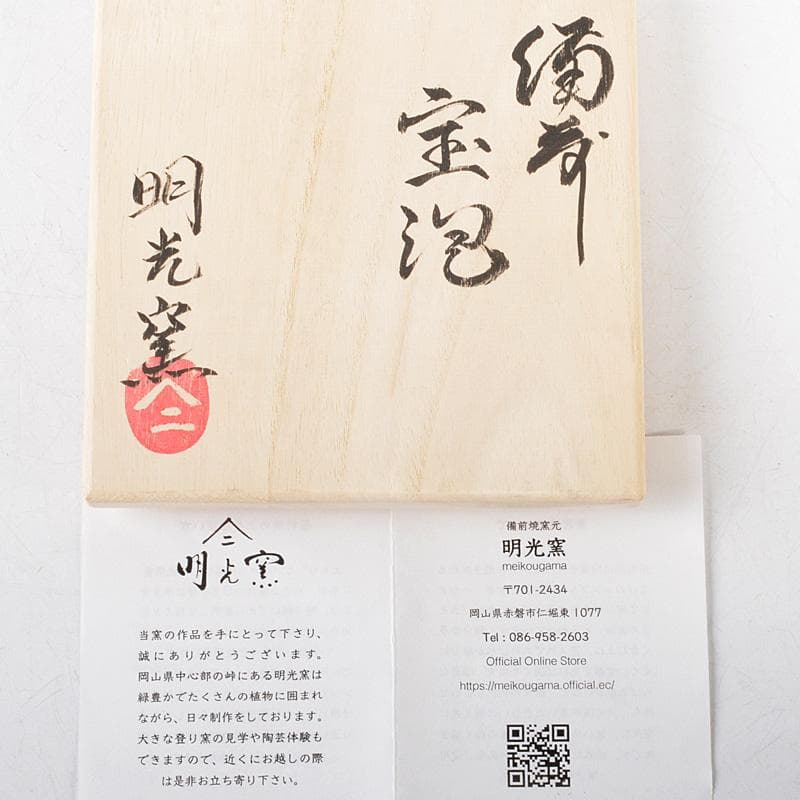 備前
宝泡
明光窯
二
二
明光窯
当窯の作品を手にとって下さり、
誠にありがとうございます。
岡山県中心部の峠にある明光窯は
緑豊かでたくさんの植物に囲まれ
ながら、日々制作をしております。
大きな登り窯の見学や陶芸体験も
できますので、近くにお越しの際
は是非お立ち寄り下さい。
備前焼窯元
明光窯
meikougama
〒701-2434
岡山県赤磐市仁堀東 1077
Tel : 086-958-2603
Official Online Store
https://meikougama.official.ec/